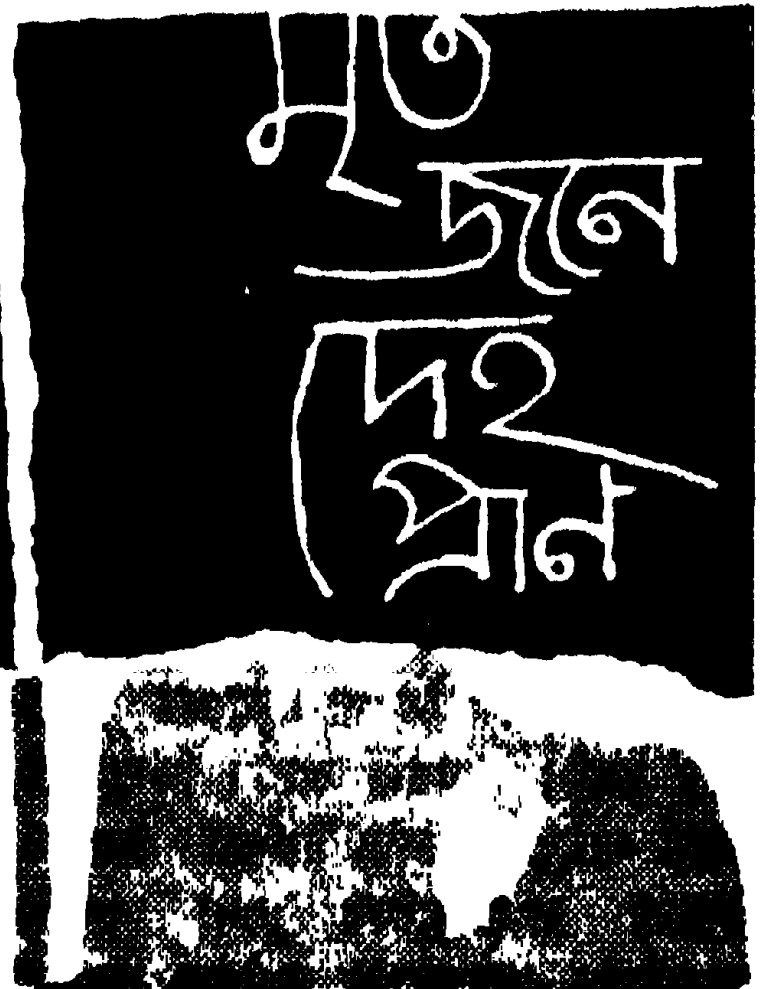 মৃত
জনে
দেহ
প্রাণ